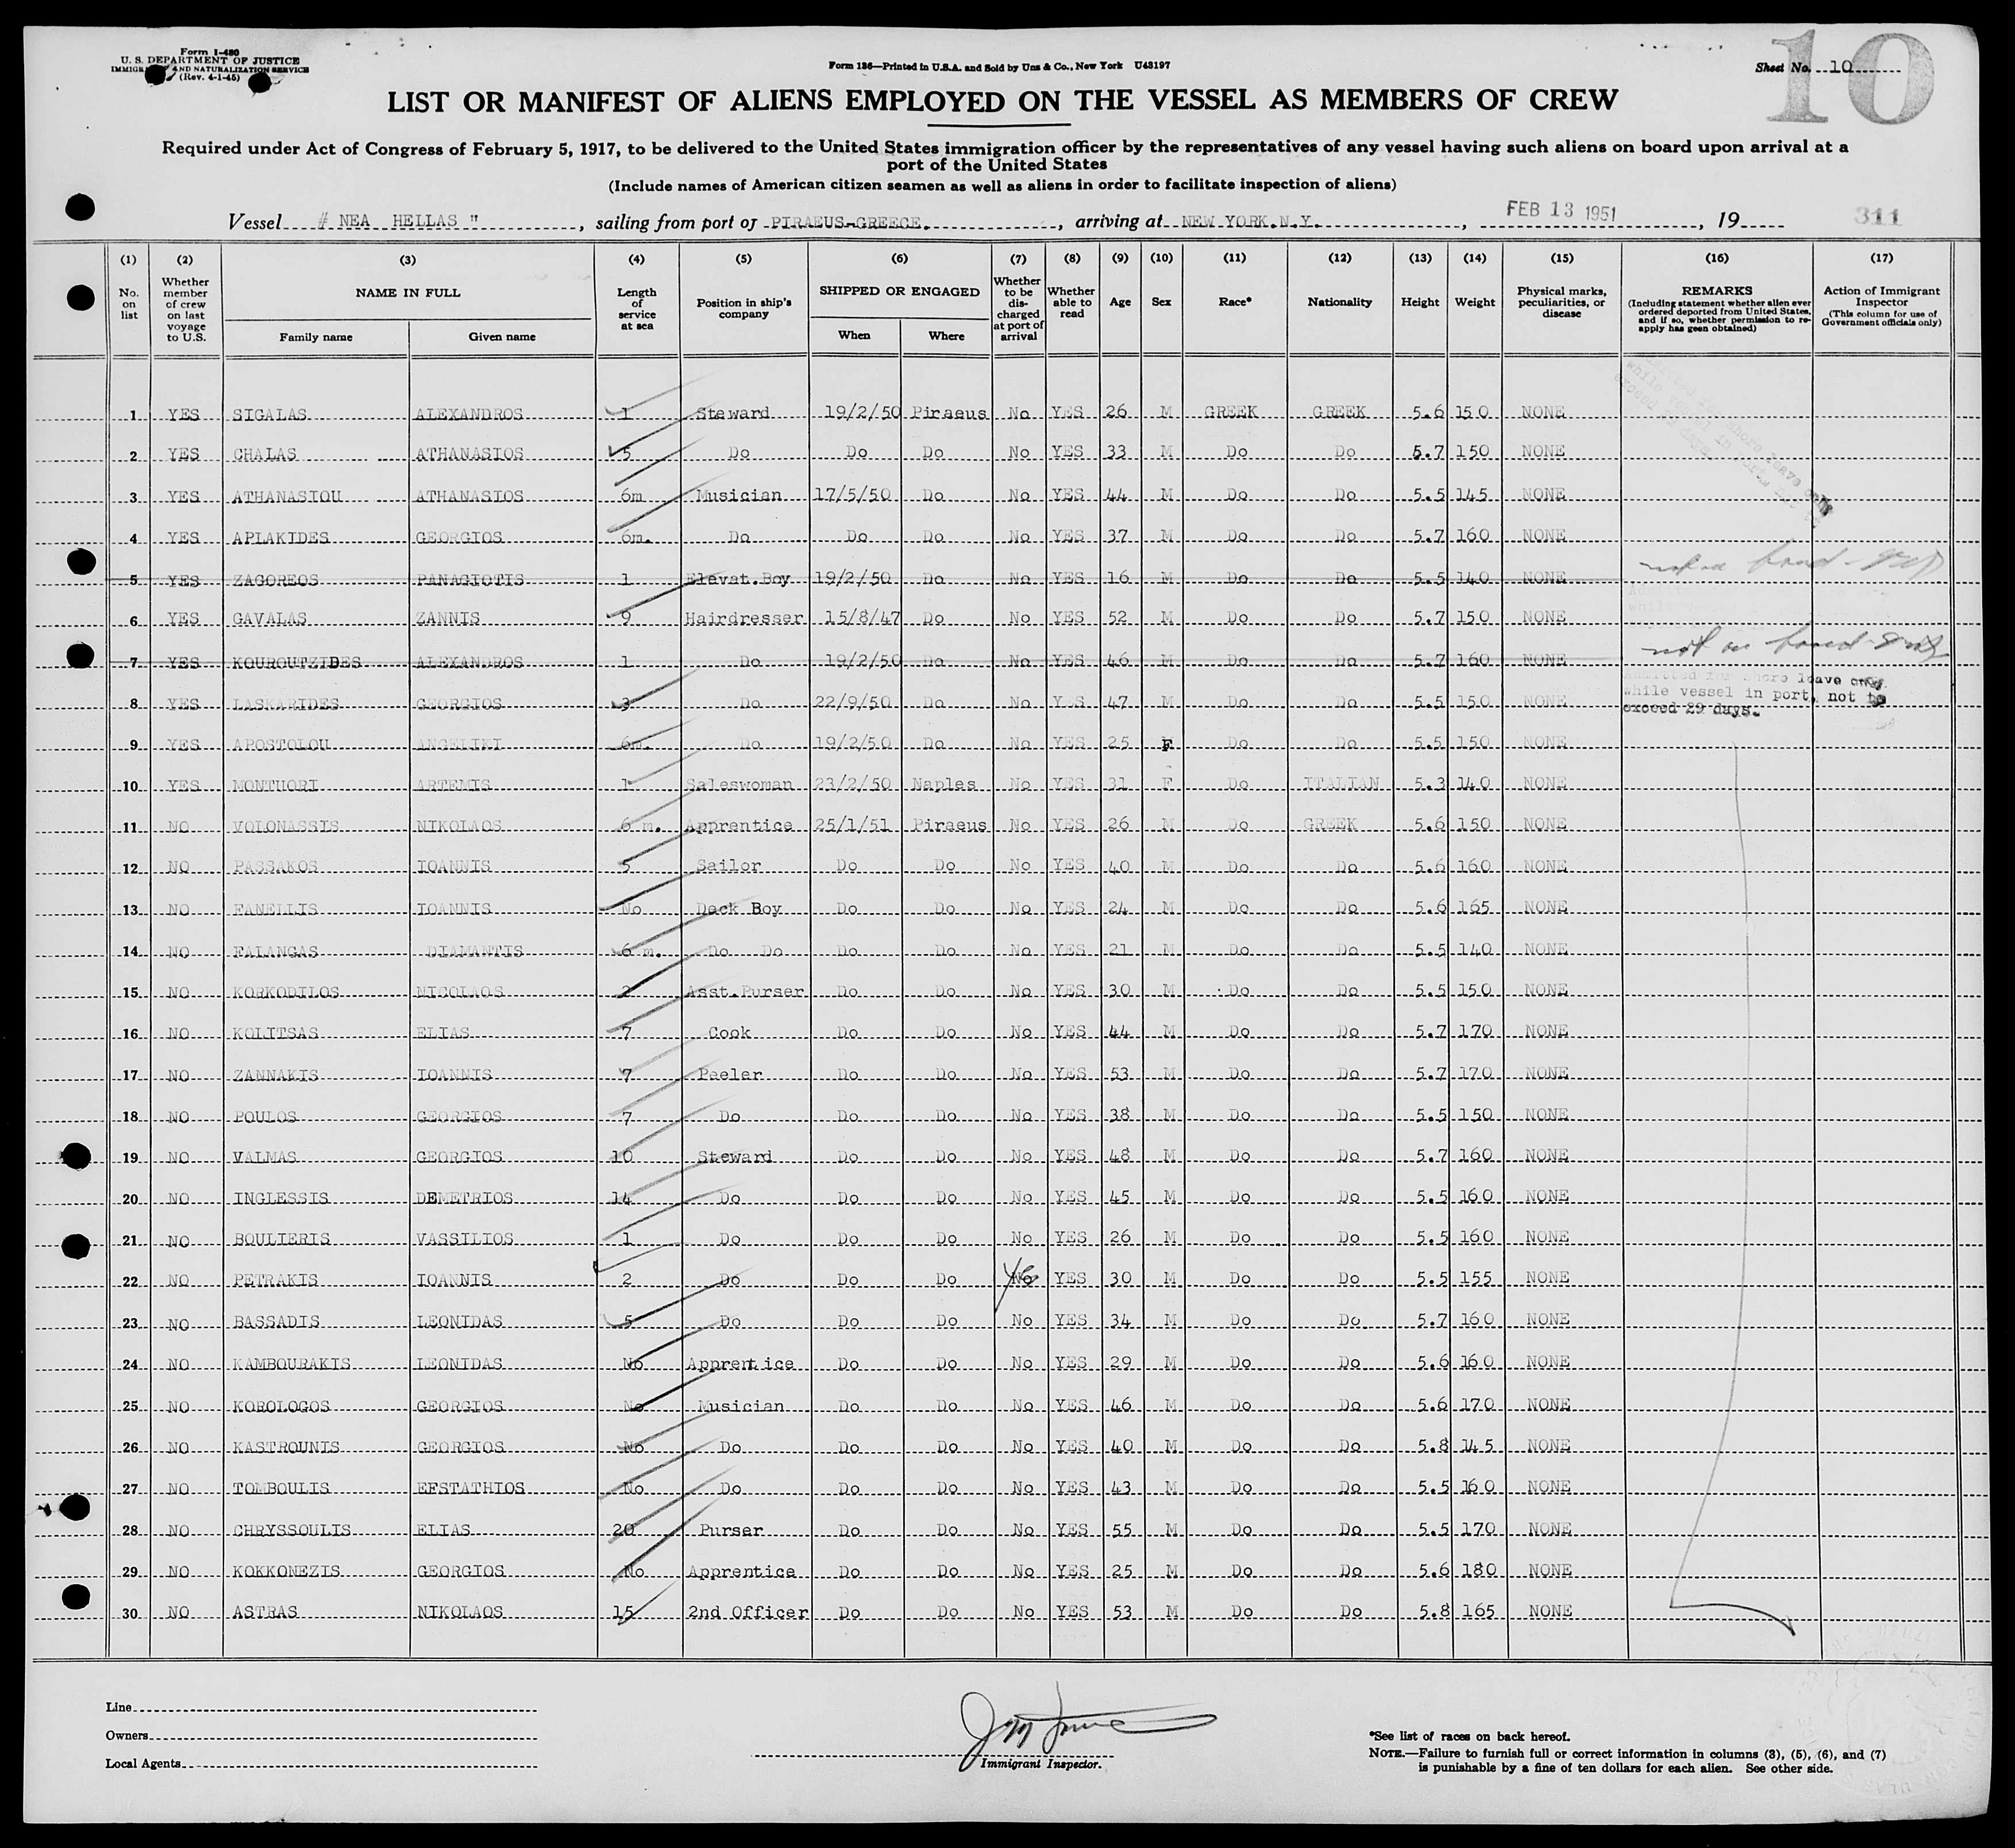 Form I-480
U. S. DEPARTMENT OF JUSTICE
IMMIGRATION AND NATURALIZATION SERVICE
(Rev. 4-1-45)
Form 136—Printed in U.S.A. and Sold by Unz & Co., New York U43197
Sheet No. 10
10
LIST OR MANIFEST OF ALIENS EMPLOYED ON THE VESSEL AS MEMBERS OF CREW
Required under Act of Congress of February 5, 1917, to be delivered to the United States immigration officer by the representatives of any vessel having such aliens on board upon arrival at a
port of the United States
(Include names of American citizen seamen as well as aliens in order to facilitate inspection of aliens)
Vessel " NEA HELLAS ", sailing from port of PIRAEUS-GREECE., arriving at NEW YORK.N.Y., FEB 13 1951, 19 311
(1) No. on list
(2) Whether member of crew on last voyage to U.S.
(3) NAME IN FULL Family name Given name
(4) Length of service at sea
(5) Position in ship's company
(6) SHIPPED OR ENGAGED When Where
(7) Whether to be discharged at port of arrival
(8) Whether able to read
(9) Age
(10) Sex
(11) Race*
(12) Nationality
(13) Height
(14) Weight
(15) Physical marks, peculiarities, or disease
(16) REMARKS (Including statement whether alien ever ordered deported from United States, and if so, whether permission to re-apply has been obtained)
(17) Action of Immigrant Inspector (This column for use of Government officials only)
1 YES SIGALAS ALEXANDROS 1 Steward 19/2/50 Piraeus No YES 26 M GREEK GREEK 5.6 150 NONE
2 YES CHALAS ATHANASIOS 5 Do Do Do No YES 33 M Do Do 5.7 150 NONE
3 YES ATHANASIOU ATHANASIOS 6m Musician 17/5/50 Do No YES 44 M Do Do 5.5 145 NONE
4 YES APLAKIDES GEORGIOS 6m. Do Do Do No YES 37 M Do Do 5.7 160 NONE
5 YES ZAGOREOS PANAGIOTIS 1 Elevat.Boy 19/2/50 Do No YES 16 M Do Do 5.5 140 NONE not on board
6 YES GAVALAS ZANNIS 9 Hairdresser 15/8/47 Do No YES 52 M Do Do 5.7 150 NONE
7 YES KOUROUTZIDES ALEXANDROS 1 Do 19/2/50 Do No YES 46 M Do Do 5.7 160 NONE not on board
8 YES LASKARIDES GEORGIOS 3 Do 22/9/50 Do No YES 47 M Do Do 5.5 150 NONE
Admitted for shore leave only
while vessel in port, not to
exceed 29 days.
9 YES APOSTOLOU ANGELIKI 6m. Do 19/2/50 Do No YES 25 F Do Do 5.5 150 NONE
10 YES MONTUORI ARTEMIS 1 Saleswoman 23/2/50 Naples No YES 31 F Do ITALIAN 5.3 140 NONE
11 NO VOLONASSIS NIKOLAOS 6 m. Apprentice 25/1/51 Piraeus No YES 26 M Do GREEK 5.6 150 NONE
12 NO PASSAKOS IOANNIS 5 Sailor Do Do No YES 40 M Do Do 5.6 160 NONE
13 NO FANELLIS IOANNIS No Deck Boy Do Do No YES 24 M Do Do 5.6 165 NONE
14 NO FALANGAS DIAMANTIS 6 m. Do Do Do Do No YES 21 M Do Do 5.5 140 NONE
15 NO KORKODILOS NICOLAOS 2 Asst.Purser Do Do No YES 30 M Do Do 5.5 150 NONE
16 NO KOLITSAS ELIAS 7 Cook Do Do No YES 44 M Do Do 5.7 170 NONE
17 NO ZANNAKIS IOANNIS 7 Peeler Do Do No YES 53 M Do Do 5.7 170 NONE
18 NO POULOS GEORGIOS 7 Do Do Do No YES 38 M Do Do 5.5 150 NONE
19 NO VALMAS GEORGIOS 10 Steward Do Do No YES 48 M Do Do 5.7 160 NONE
20 NO INGLESSIS DEMETRIOS 14 Do Do Do No YES 45 M Do Do 5.5 160 NONE
21 NO BOULIERIS VASSILIOS 1 Do Do Do No YES 26 M Do Do 5.5 160 NONE
22 NO PETRAKIS IOANNIS 2 Do Do Do No Yes YES 30 M Do Do 5.5 155 NONE
23 NO BASSADIS LEONIDAS 5 Do Do Do No YES 34 M Do Do 5.7 160 NONE
24 NO KAMBOURAKIS LEONIDAS No Apprentice Do Do No YES 29 M Do Do 5.6 160 NONE
25 NO KOROLOGOS GEORGIOS No Musician Do Do No YES 46 M Do Do 5.6 170 NONE
26 NO KASTROUNIS GEORGIOS No Do Do Do No YES 40 M Do Do 5.8 145 NONE
27 NO TOMBOULIS EFSTATHIOS No Do Do Do No YES 43 M Do Do 5.5 160 NONE
28 NO CHRYSSOULIS ELIAS 20 Purser Do Do No YES 55 M Do Do 5.5 170 NONE
29 NO KOKKONEZIS GEORGIOS No Apprentice Do Do No YES 25 M Do Do 5.6 180 NONE
30 NO ASTRAS NIKOLAOS 15 2nd Officer Do Do No YES 53 M Do Do 5.8 165 NONE
Line
Owners
Local Agents
Immigrant Inspector.
*See list of races on back hereof.
NOTE.—Failure to furnish full or correct information in columns (3), (5), (6), and (7)
is punishable by a fine of ten dollars for each alien. See other side.